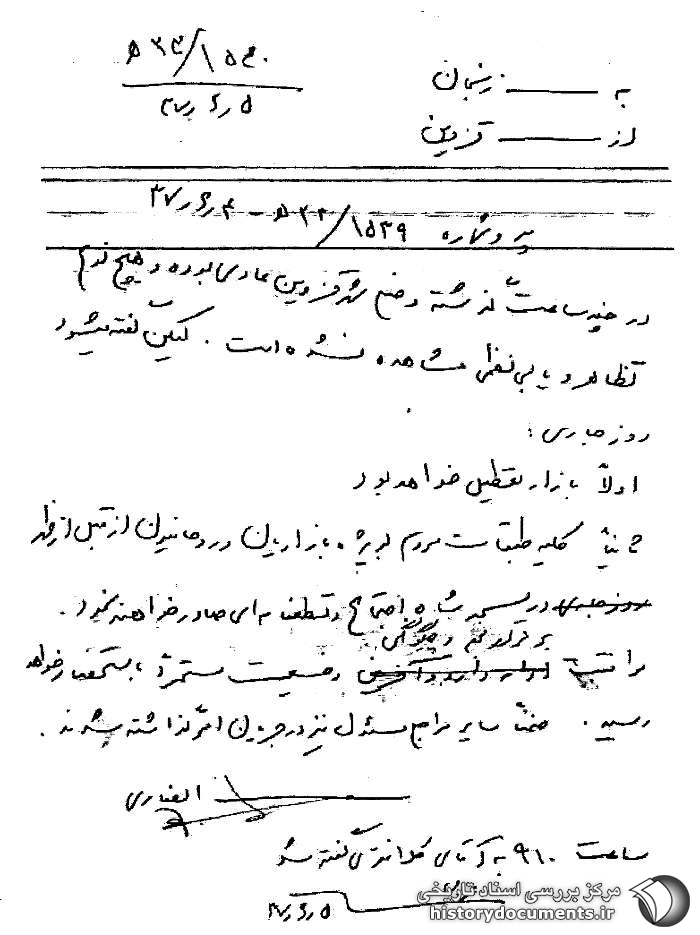 به ـــــ زنجان
۵۳۳/۱۵۴۰
از ـــــ قزوین
۵ر۶ر۳۷
پیرو شماره ۱۵۳۹/۵۳۲ - ۴ر۶ر۳۷
در چند ساعت گذشته وضع شهر قزوین عادی بوده و هیچ نوع
تظاهر و یا بی‌نظمی مشاهده نشده است. لیکن گفته میشود
روز جاری:
اولاً بازار تعطیل خواهد بود
ثانیاً کلیه طبقات مردم بویژه بازاریان و روحانیون از قبل از ظهر
در مسجد شاه اجتماع و قطعنامه‌ای صادر خواهند نمود.
برقراری نظم و چگونگی
مراتب وضعیت مستمراً باستحضار خواهد
رسید. ضمناً سایر مراجع مسئول نیز در جریان امر گذاشته شده‌اند.
الغفاری
ساعت ۹۱۰ به آقای کلانتری گفته شد
۵ر۶ر۳۷
مرکز بررسی اسناد تاریخی
historydocuments.ir